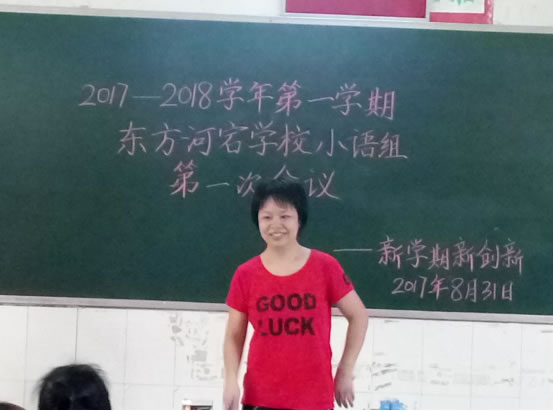 2017—2018学年第一学期
东方河宕学校小语组
第一次会议
——新学期新创新
2017年8月31日
GOOD
LUCK